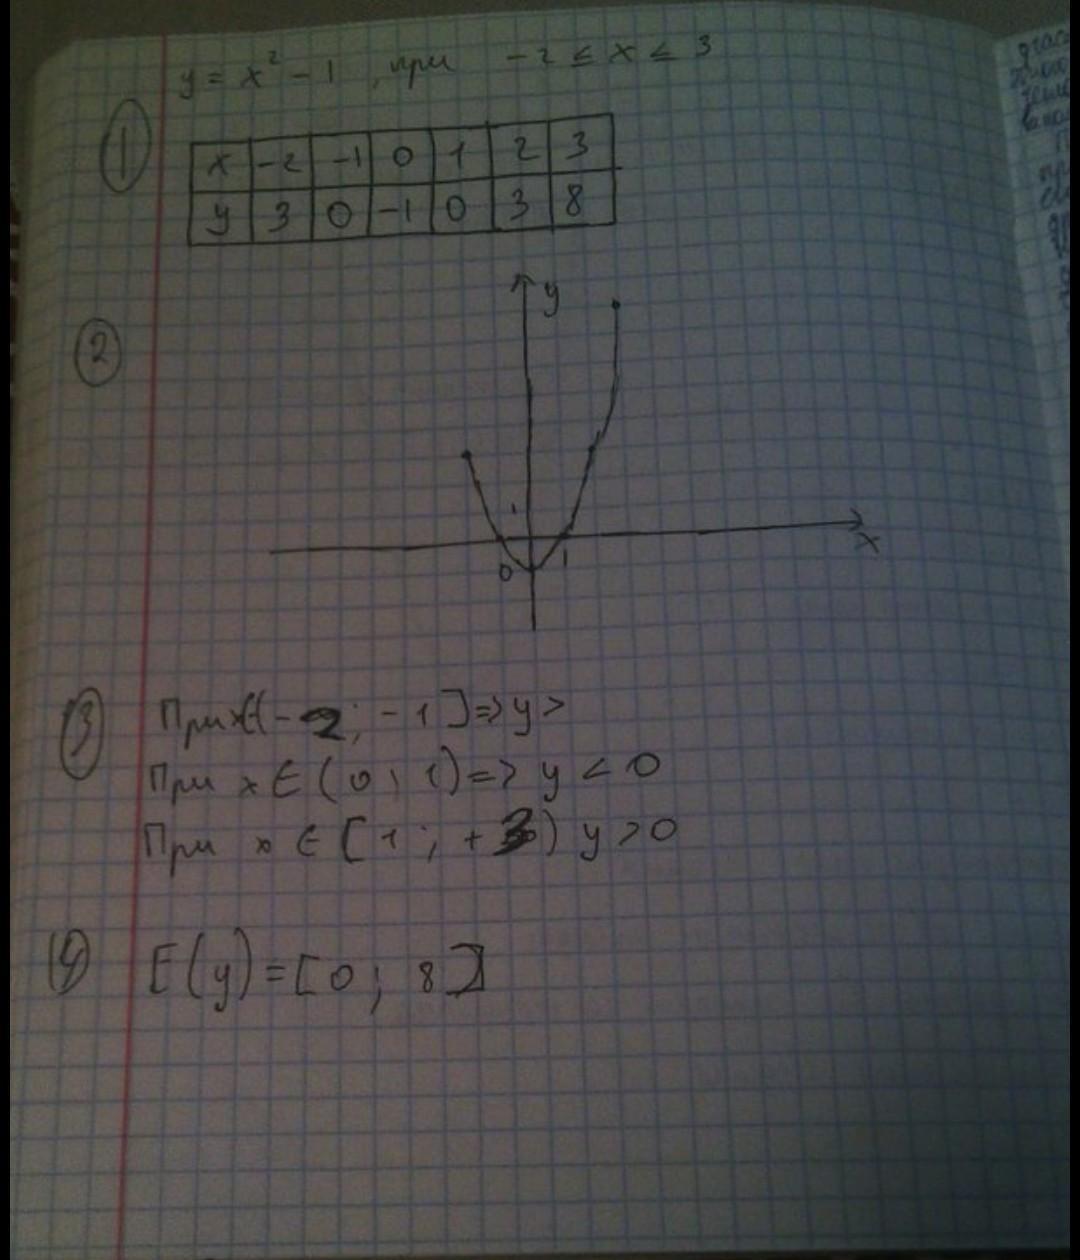 y = x² - 1 , при -2 ≤ x ≤ 3
①
x -2 -1 0 1 2 3
y 3 0 -1 0 3 8
②
y
1
0 1
x
③ При x∈(-2; -1] => y >
При x ∈ (0; 1) => y < 0
При x ∈ [1; +3) y > 0
④ E(y) = [0; 8]